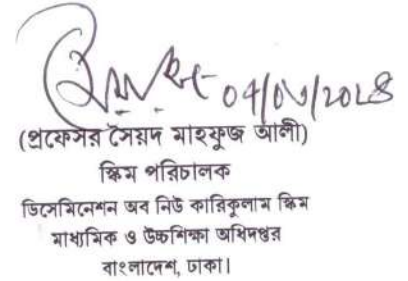 (প্রফেসর সৈয়দ মাহফুজ আলী)
স্কিম পরিচালক
ডিসেমিনেশন অব নিউ কারিকুলাম স্কিম
মাধ্যমিক ও উচ্চশিক্ষা অধিদপ্তর
বাংলাদেশ, ঢাকা।